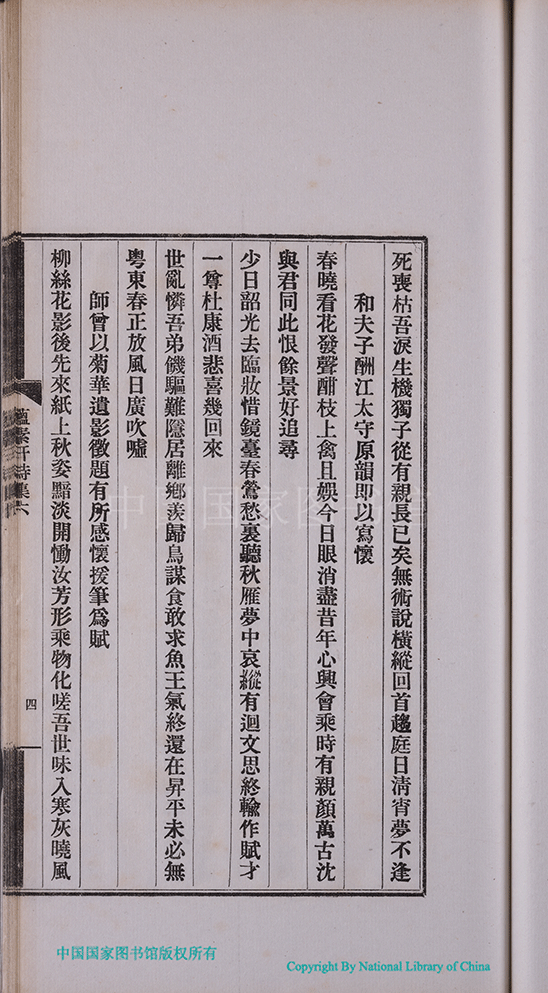 死喪枯吾淚生機獨子從有親長已矣無術說橫縱回首趨庭日淸宵夢不逢
和夫子酬江太守原韻即以寫懷
春曉看花發聲酣枝上禽且娛今日眼消盡昔年心興會乘時有親顏萬古沈
與君同此恨餘景好追尋
少日韶光去臨妝惜鏡臺春鶯愁裏聽秋雁夢中哀縱有迴文思終輸作賦才
一尊杜康酒悲喜幾回來
世亂憐吾弟饑驅難隱居離鄉羨歸鳥謀食敢求魚王氣終還在昇平未必無
粵東春正放風日廣吹噓
師曾以菊華遺影徵題有所感懷援筆爲賦
柳絲花影後先來紙上秋姿黯淡開慟汝芳形乘物化嗟吾世味入寒灰曉風
蘊素軒詩集六
四
中国国家图
中国国家图书馆版权所有
Copyright By National Library of China